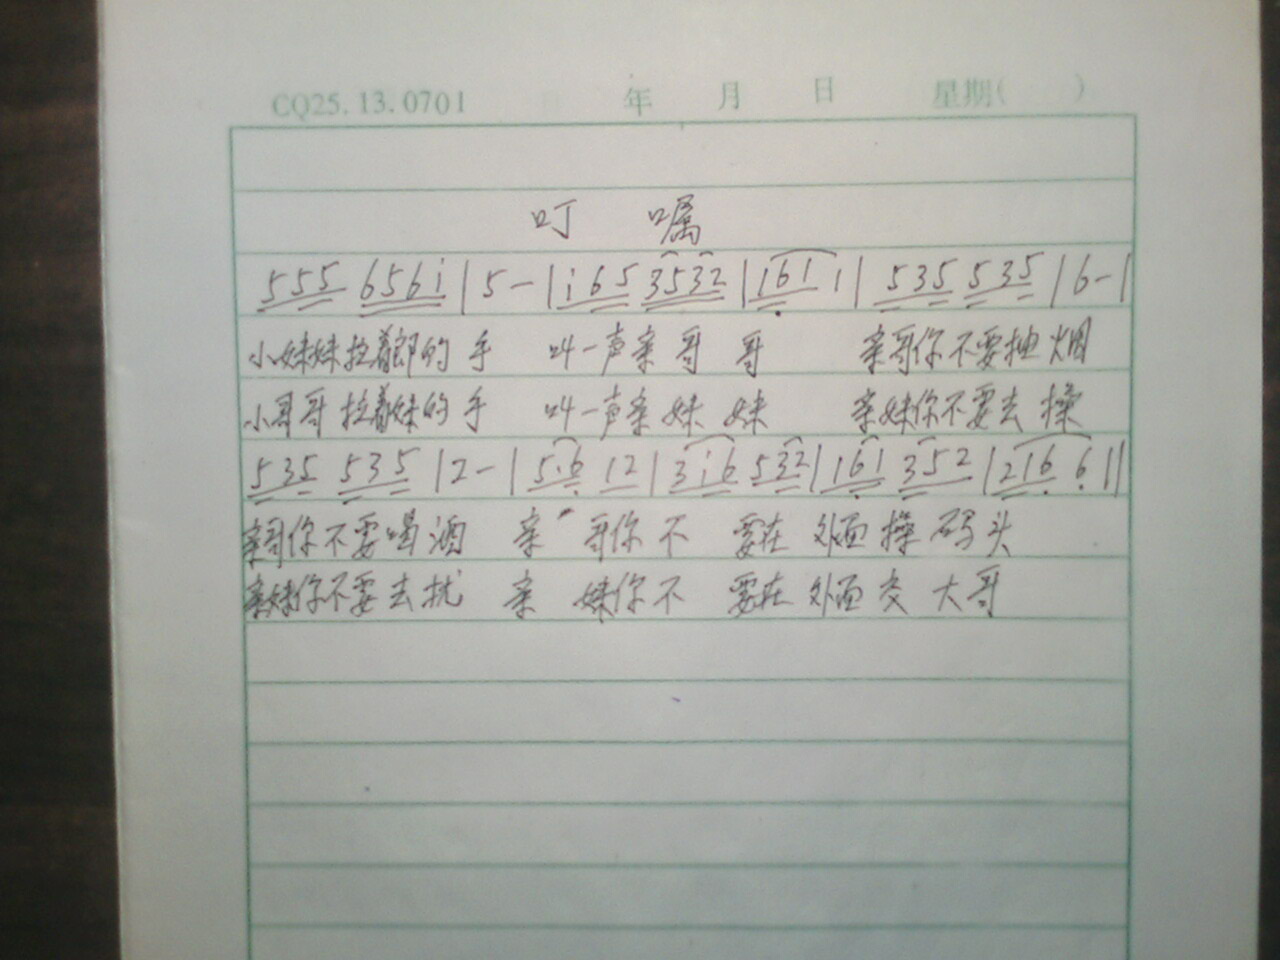 CQ25.13.0701 年 月 日 星期( )
叮 嘱
555 656i | 5 – | i65 3532 | 161 1 | 535 535 | 6 – |
小妹妹拉着郎的手 叫一声亲哥哥 亲哥你不要抽烟
小哥哥拉着妹的手 叫一声亲妹妹 亲妹你不要去操
535 535 | 2 – | 5·6 12 | 3i6 532 | 161 352 | 216 6 ||
亲哥你不要喝酒 亲 哥你不 要在 外面操码头
亲妹你不要去扰 亲 妹你不 要在 外面交 大哥